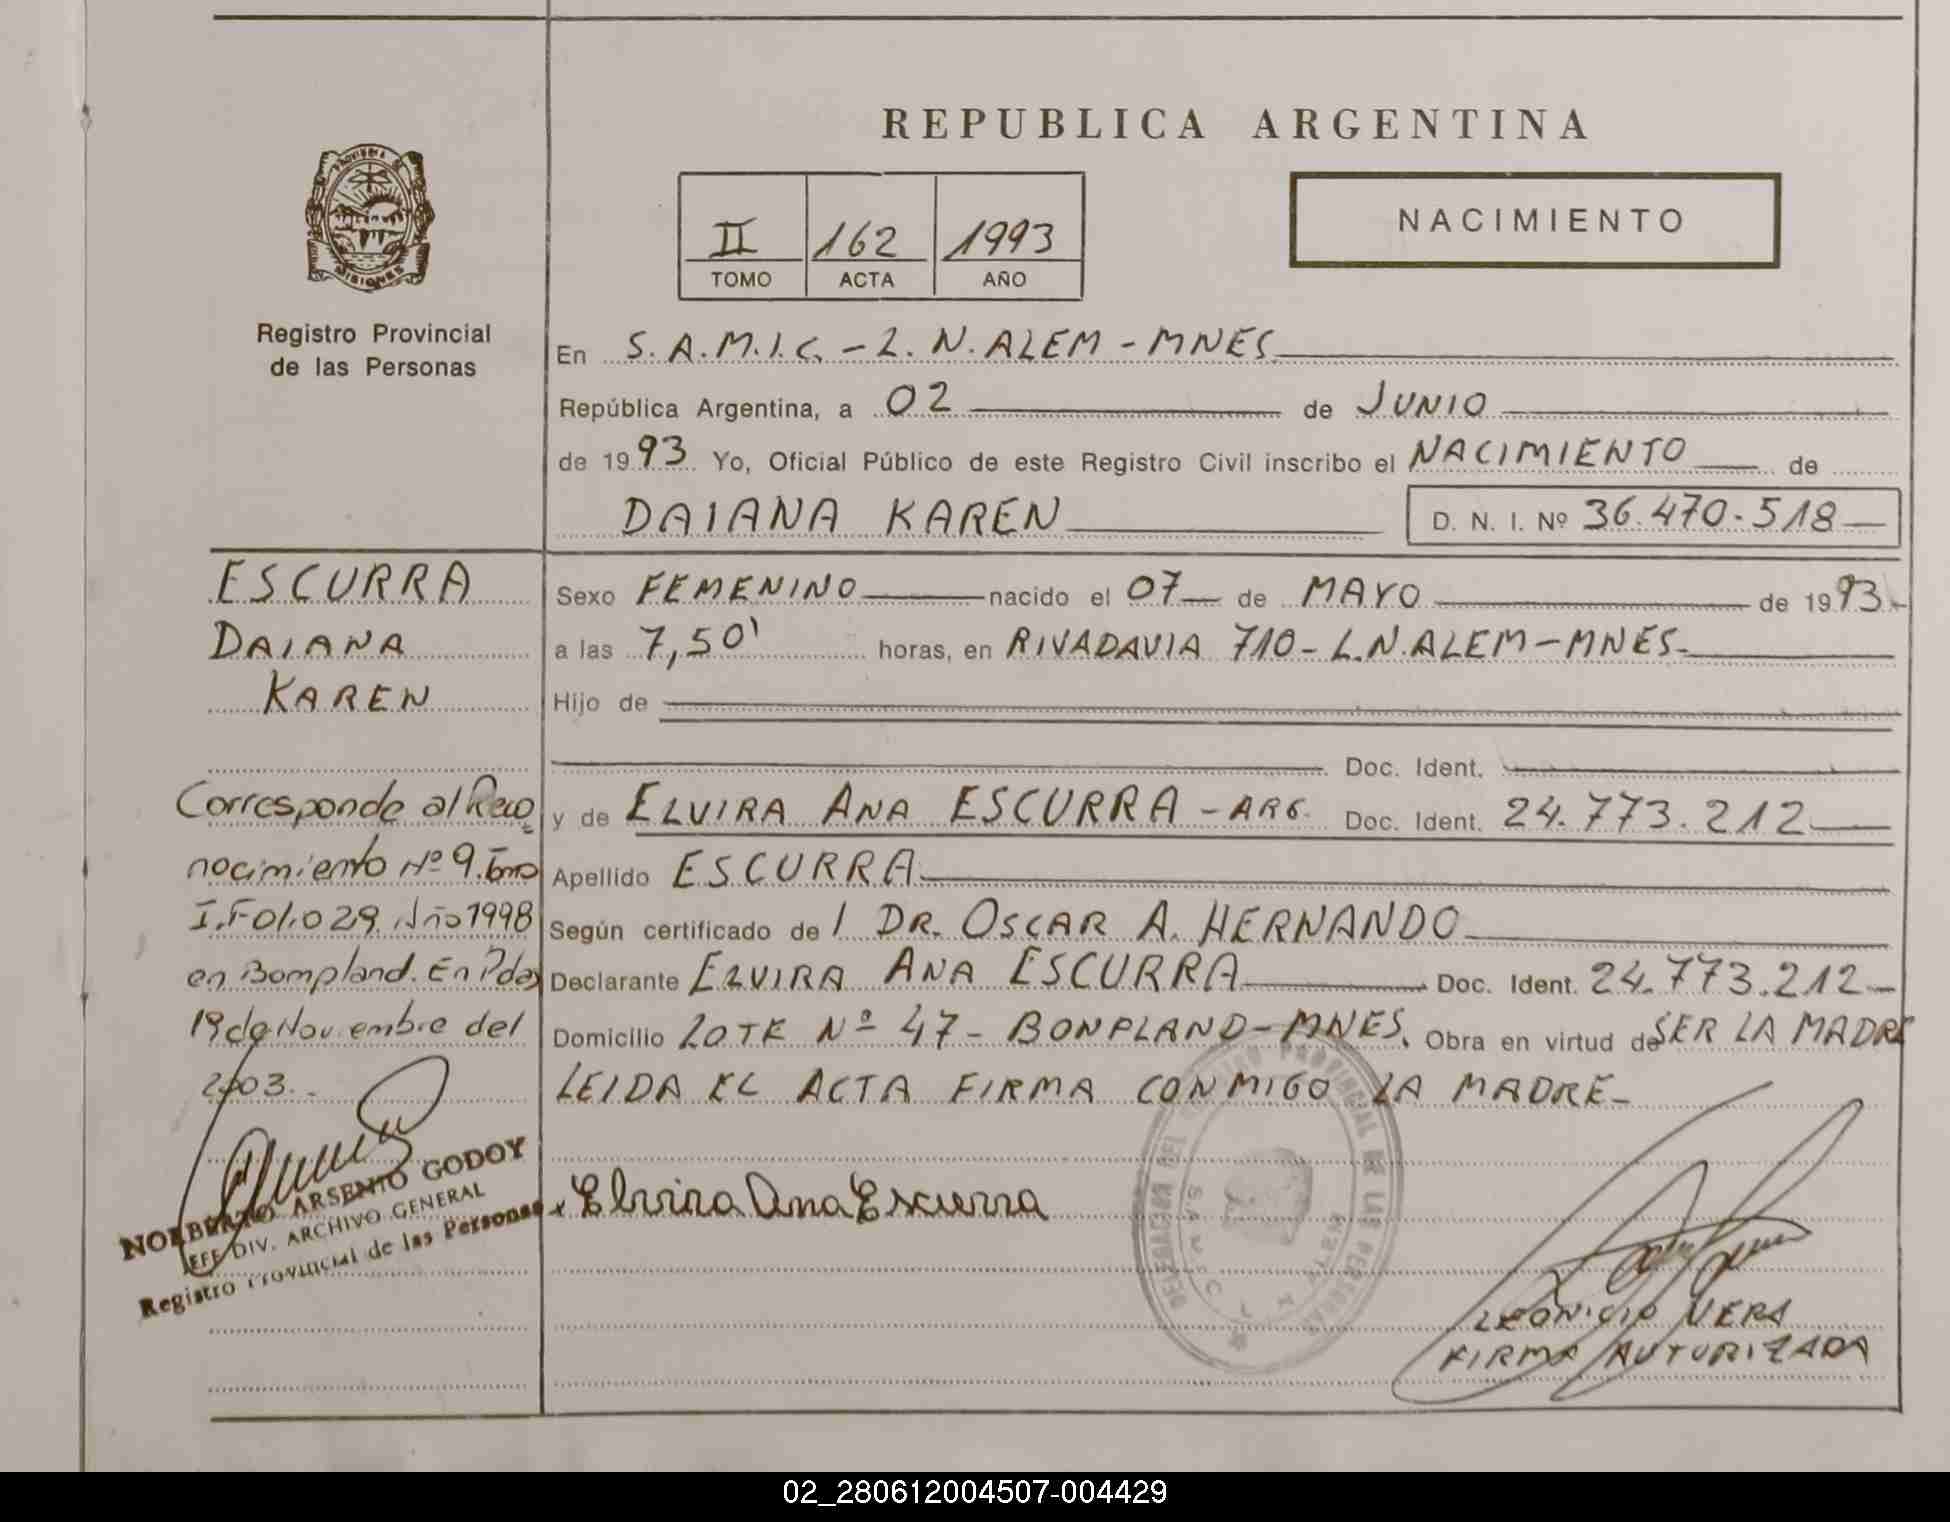 REPUBLICA ARGENTINA
PROVINCIA DE
MISIONES
Registro Provincial
de las Personas
II 162 1993
TOMO ACTA AÑO
NACIMIENTO
En S.A.M.I.C. - L. N. ALEM - MNES.
República Argentina, a 02 de JUNIO
de 1993 Yo, Oficial Público de este Registro Civil inscribo el NACIMIENTO de
DAIANA KAREN D. N. I. Nº 36.470.518
ESCURRA
DAIANA
KAREN
Sexo FEMENINO nacido el 07 de MAYO de 1993
a las 7,50' horas, en RIVADAVIA 710 - L.N.ALEM - MNES.
Hijo de
Doc. Ident.
y de ELVIRA ANA ESCURRA - ARG. Doc. Ident. 24.773.212
Apellido ESCURRA
Según certificado de l DR. OSCAR A. HERNANDO
Declarante ELVIRA ANA ESCURRA Doc. Ident. 24.773.212
Domicilio LOTE Nº 47 - BONPLAND - MNES. Obra en virtud de SER LA MADRE
LEIDA EL ACTA FIRMA CONMIGO LA MADRE
Corresponde al Reco
nocimiento Nº 9. Tomo
I. Folio 29. Año 1998
en Bompland. En Pdas
19 de Noviembre del
2003.
NORBERTO ARSENIO GODOY
JEFE DIV. ARCHIVO GENERAL
Registro Provincial de las Personas
Elvira Ana Escurra
DELEGACION DEL REGISTRO PROVINCIAL DE LAS PERSONAS
LEONICIO VERA
FIRMA AUTORIZADA
02_280612004507-004429